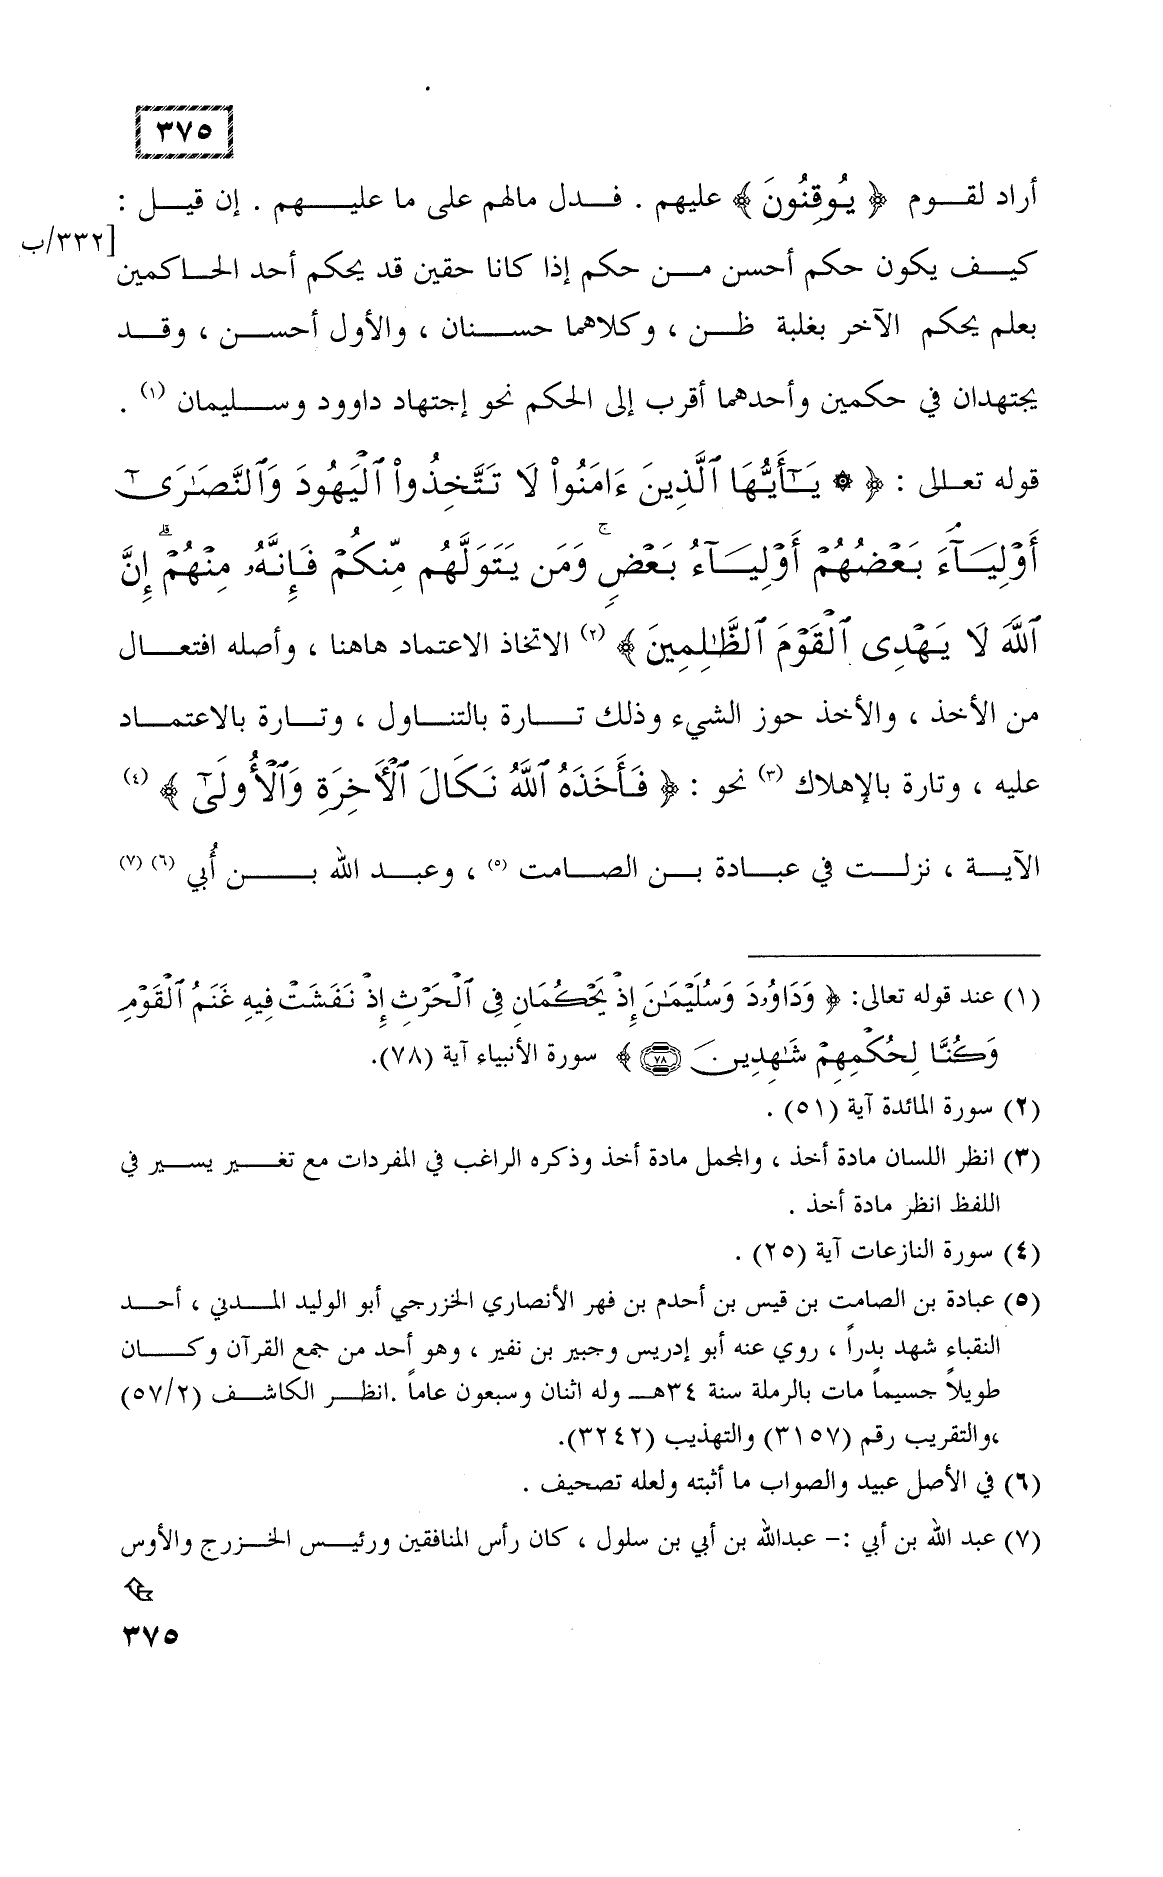 ٣٧٥
أراد لقوم ﴿ يُوقِنُونَ ﴾ عليهم . فدل مالهم على ما عليهم . إن قيل :
[٣٣٢/ب
كيف يكون حكم أحسن من حكم إذا كانا حقين قد يحكم أحد الحاكمين
بعلم يحكم الآخر بغلبة ظن ، وكلاهما حسنان ، والأول أحسن ، وقد
يجتهدان في حكمين وأحدهما أقرب إلى الحكم نحو إجتهاد داوود وسليمان (١) .
قوله تعالى : ﴿ ۞ يَـٰٓأَيُّهَا ٱلَّذِينَ ءَامَنُوا۟ لَا تَتَّخِذُوا۟ ٱلْيَهُودَ وَٱلنَّصَـٰرَىٰٓ
أَوْلِيَآءَ ۘ بَعْضُهُمْ أَوْلِيَآءُ بَعْضٍ ۚ وَمَن يَتَوَلَّهُم مِّنكُمْ فَإِنَّهُۥ مِنْهُمْ ۗ إِنَّ
ٱللَّهَ لَا يَهْدِى ٱلْقَوْمَ ٱلظَّـٰلِمِينَ ﴾ (٢) الاتخاذ الاعتماد هاهنا ، وأصله افتعال
من الأخذ ، والأخذ حوز الشيء وذلك تارة بالتناول ، وتارة بالاعتماد
عليه ، وتارة بالإهلاك (٣) نحو : ﴿ فَأَخَذَهُ ٱللَّهُ نَكَالَ ٱلْـَٔاخِرَةِ وَٱلْأُولَىٰٓ ﴾ (٤)
الآية ، نزلت في عبادة بن الصامت (٥) ، وعبد الله بن أُبي (٦) (٧)
(١) عند قوله تعالى: ﴿ وَدَاوُۥدَ وَسُلَيْمَـٰنَ إِذْ يَحْكُمَانِ فِى ٱلْحَرْثِ إِذْ نَفَشَتْ فِيهِ غَنَمُ ٱلْقَوْمِ
وَكُنَّا لِحُكْمِهِمْ شَـٰهِدِينَ ٧٨ ﴾ سورة الأنبياء آية (٧٨).
(٢) سورة المائدة آية (٥١) .
(٣) انظر اللسان مادة أخذ ، والمجمل مادة أخذ وذكره الراغب في المفردات مع تغير يسير في
اللفظ انظر مادة أخذ .
(٤) سورة النازعات آية (٢٥) .
(٥) عبادة بن الصامت بن قيس بن أحدم بن فهر الأنصاري الخزرجي أبو الوليد المدني ، أحد
النقباء شهد بدراً ، روي عنه أبو إدريس وجبير بن نفير ، وهو أحد من جمع القرآن وكان
طويلاً جسيماً مات بالرملة سنة ٣٤هـ وله اثنان وسبعون عاماً .انظر الكاشف (٥٧/٢)
،والتقريب رقم (٣١٥٧) والتهذيب (٣٢٤٢).
(٦) في الأصل عبيد والصواب ما أثبته ولعله تصحيف .
(٧) عبد الله بن أبي :- عبدالله بن أبي بن سلول ، كان رأس المنافقين ورئيس الخزرج والأوس
٣٧٥